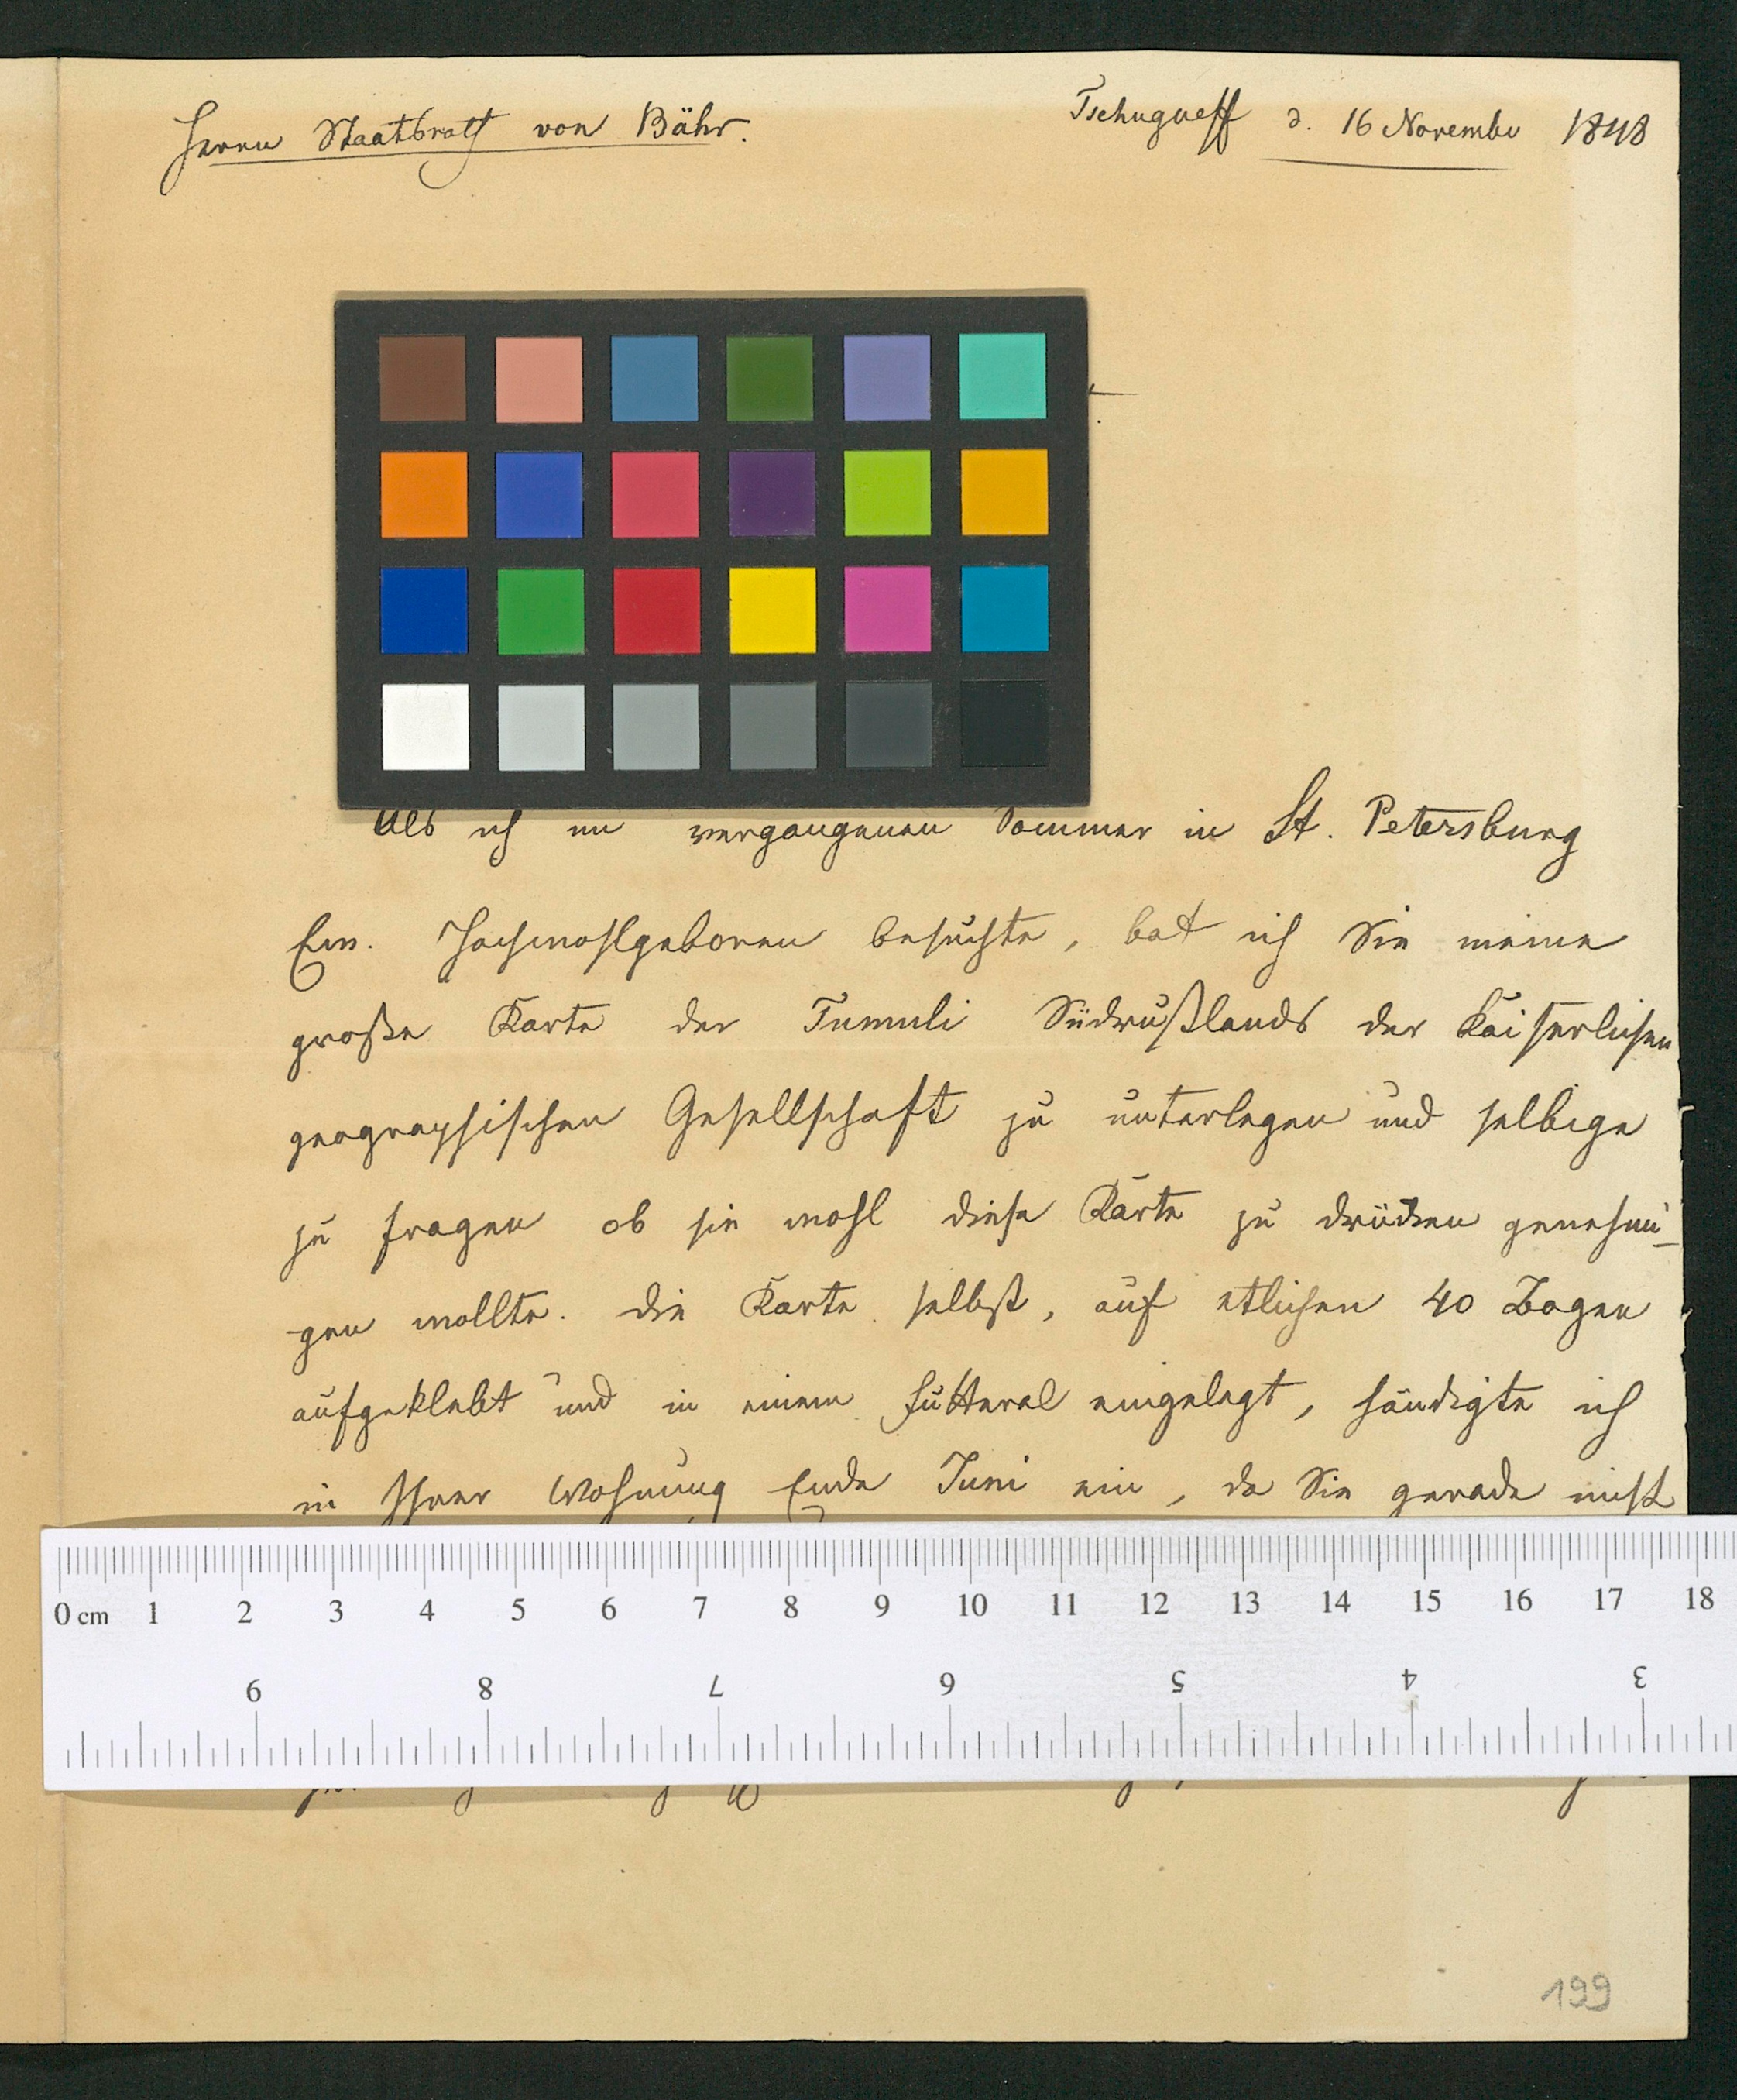 Herrn Staatsrath von Bähr.
Tschugueff d. 16 November 1848
Als ich im vergangenen Sommer in St. Petersburg
Ew. Hochwohlgeboren besuchte, bat ich Sie meine
große Karte der Tumuli Südrußlands der Kaiserlichen
geographischen Gesellschaft zu unterlegen und selbige
zu fragen ob sie wohl diese Karte zu drücken genehmi-
gen wollte. Die Karte selbst, auf etlichen 40 Bogen
aufgeklebt und in einem Futteral eingelegt, händigte ich
in Ihrer Wohnung Ende Juni ein, da Sie gerade nicht
0 cm 1 2 3 4 5 6 7 8 9 10 11 12 13 14 15 16 17 18
9 8 7 6 5 4 3
199